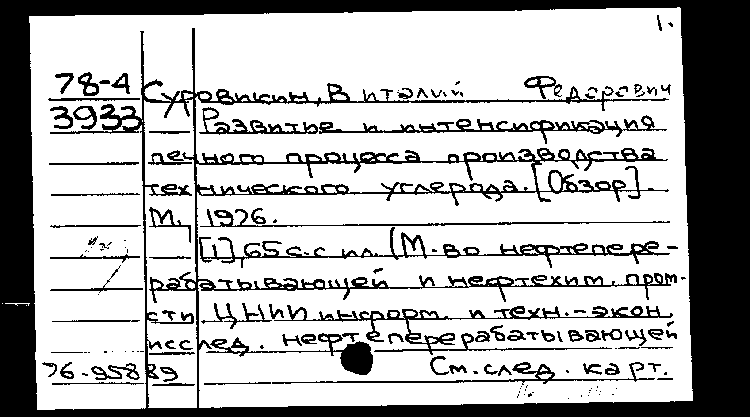 1.
78-4 Суровикин, Виталий Федорович
3933 Развитие и интенсификация
печного процесса производства
технического углерода. [Обзор].
М., 1976.
[1], 65 с. с ил. (М-во нефтепере-
рабатывающей и нефтехим. пром-
сти. ЦНИИ информ. и техн.-экон.
исслед. нефтеперерабатывающей
76-95889 См. след. карт.